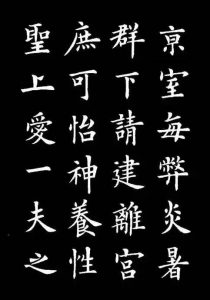 亰室每弊炎暑
群下請建離宮
庶可怡神養性
聖上愛一夫之